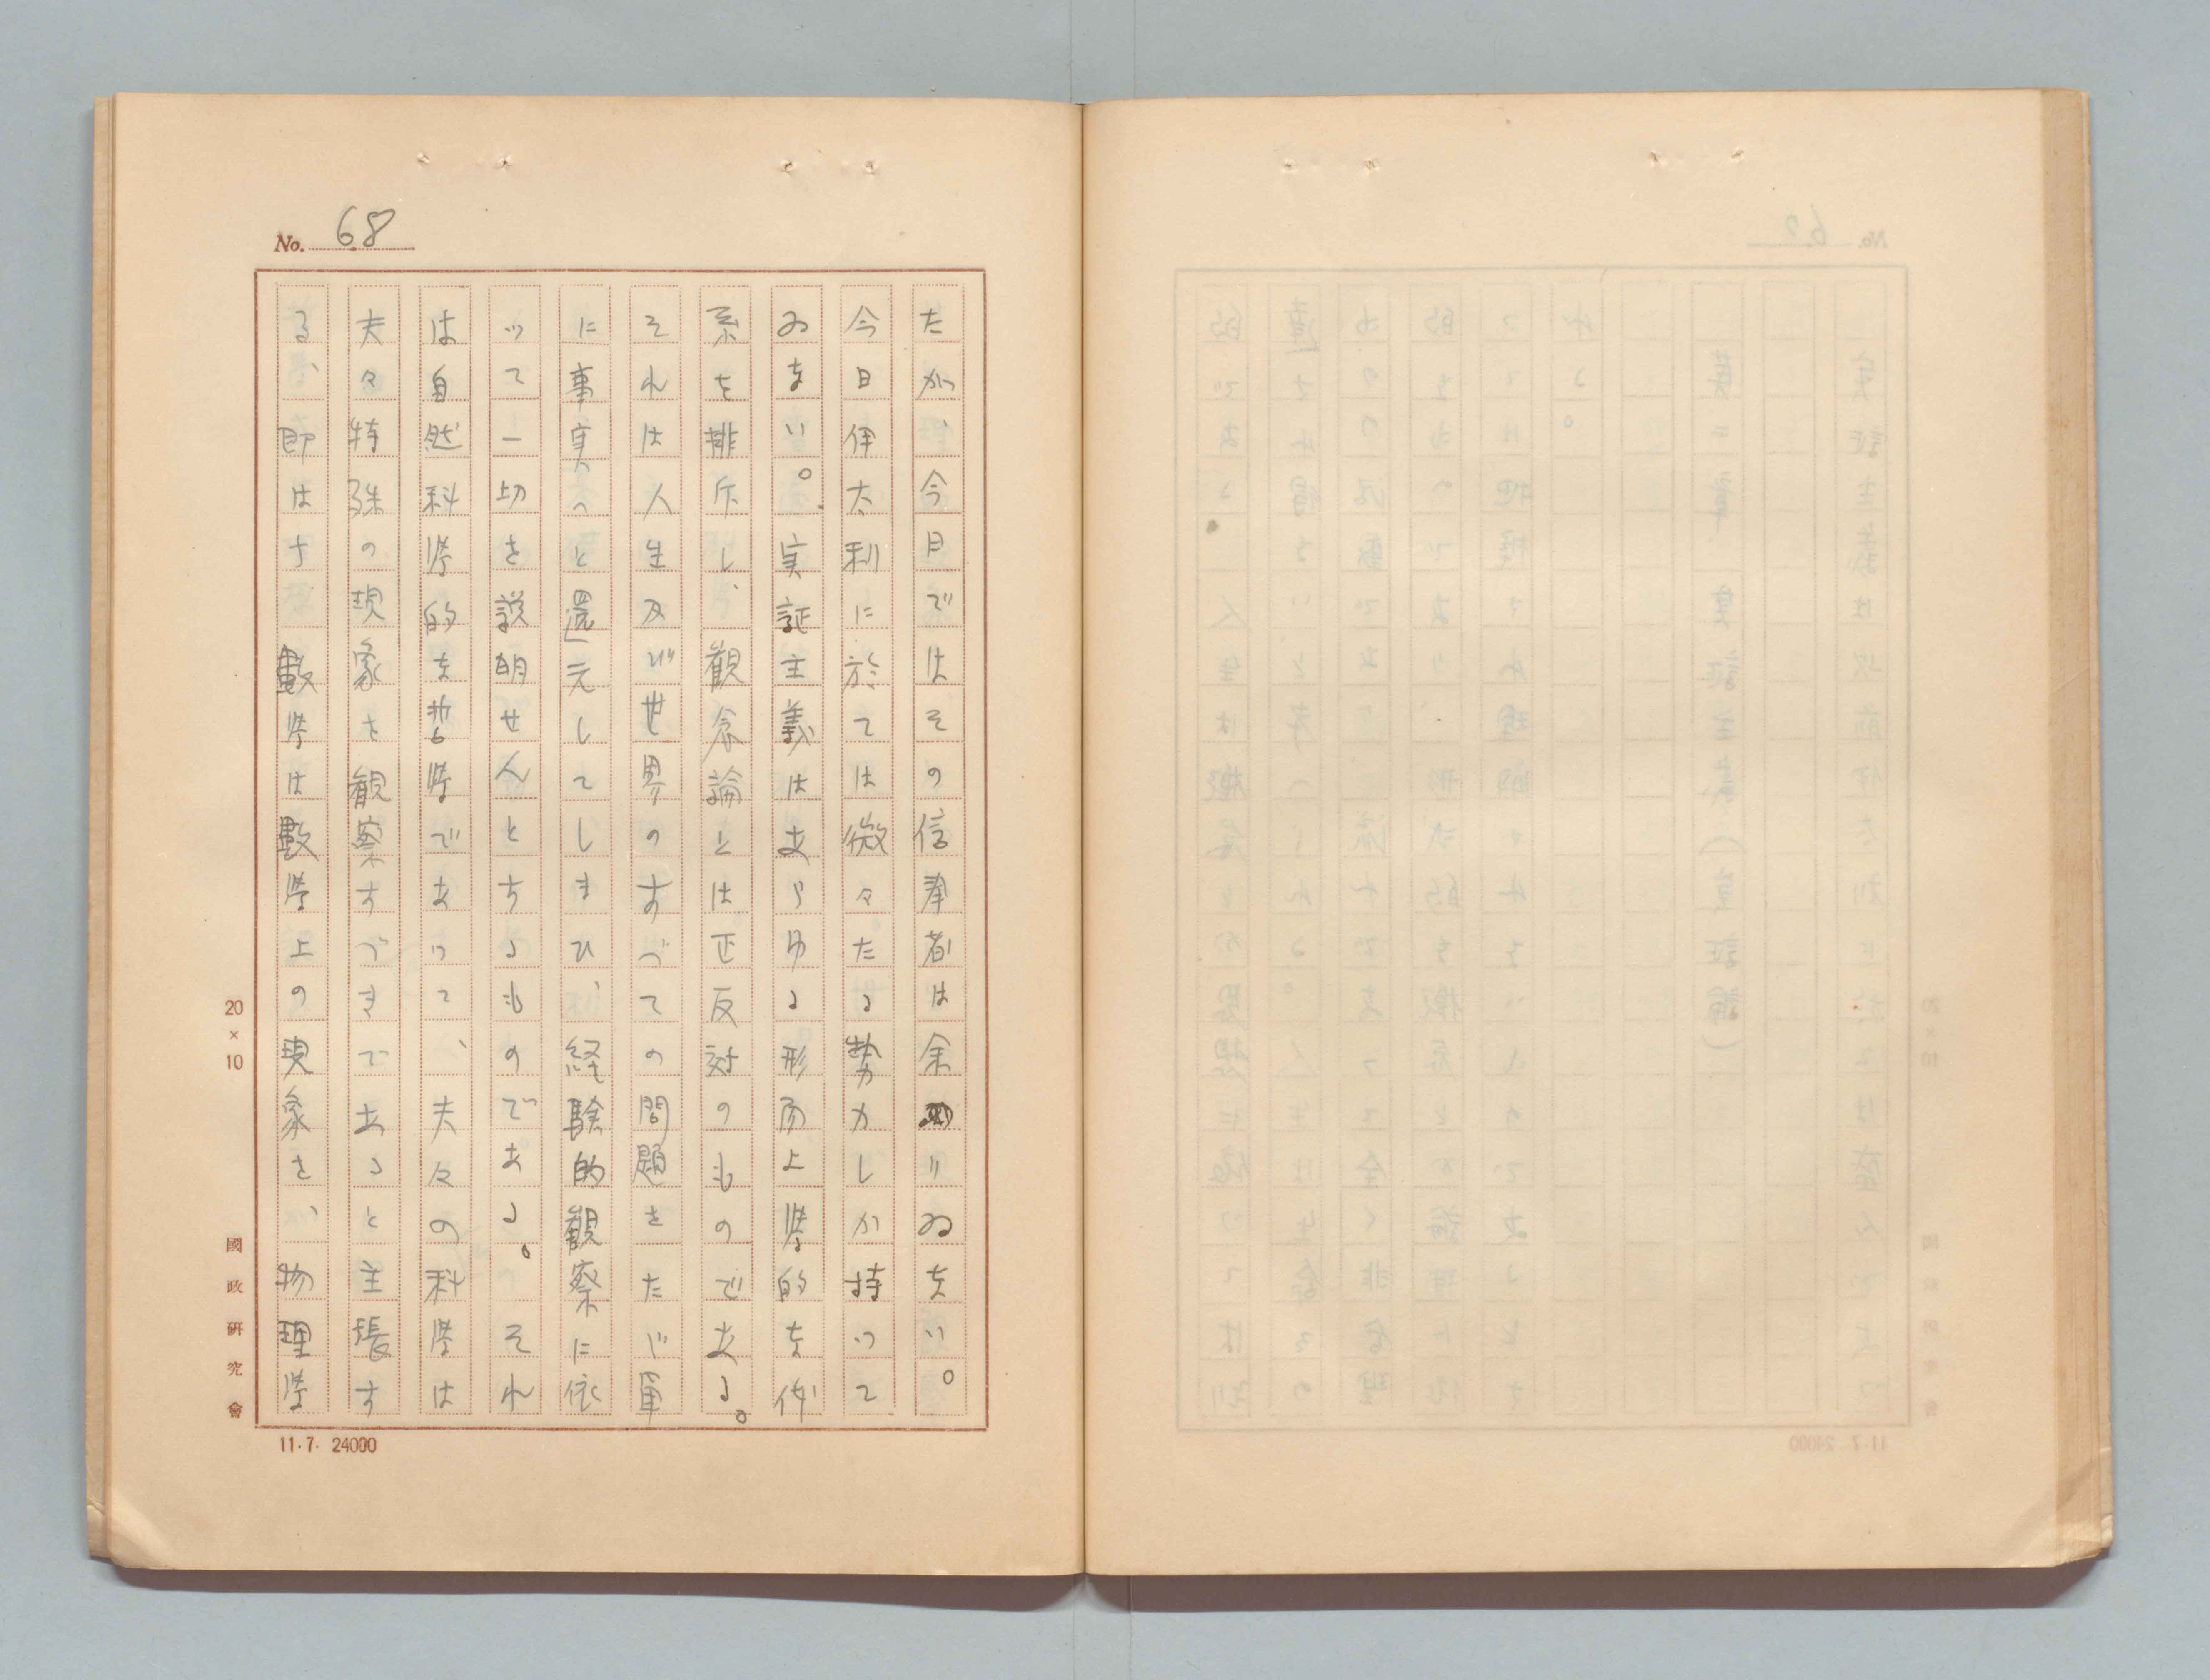 No. 68
たが、今日ではその信奉者は余りゐない。
今日伊太利に於ては微々たる勢力しか持つて
ゐない。実証主義はあらゆる形而上学的な体
系を排斥し、観念論とは正反対のものである。
それは人生及び世界のすべての問題をたゞ単
に事実へと還元してしまひ、経験的観察に依
つて一切を説明せんとするものである。それ
は自然科学的な哲学であつて、夫々の科学は
夫々特殊の現象を観察すべきであると主張す
る、即はち数学は数学上の現象を、物理学
20×10
國政研究會
11.7. 24000